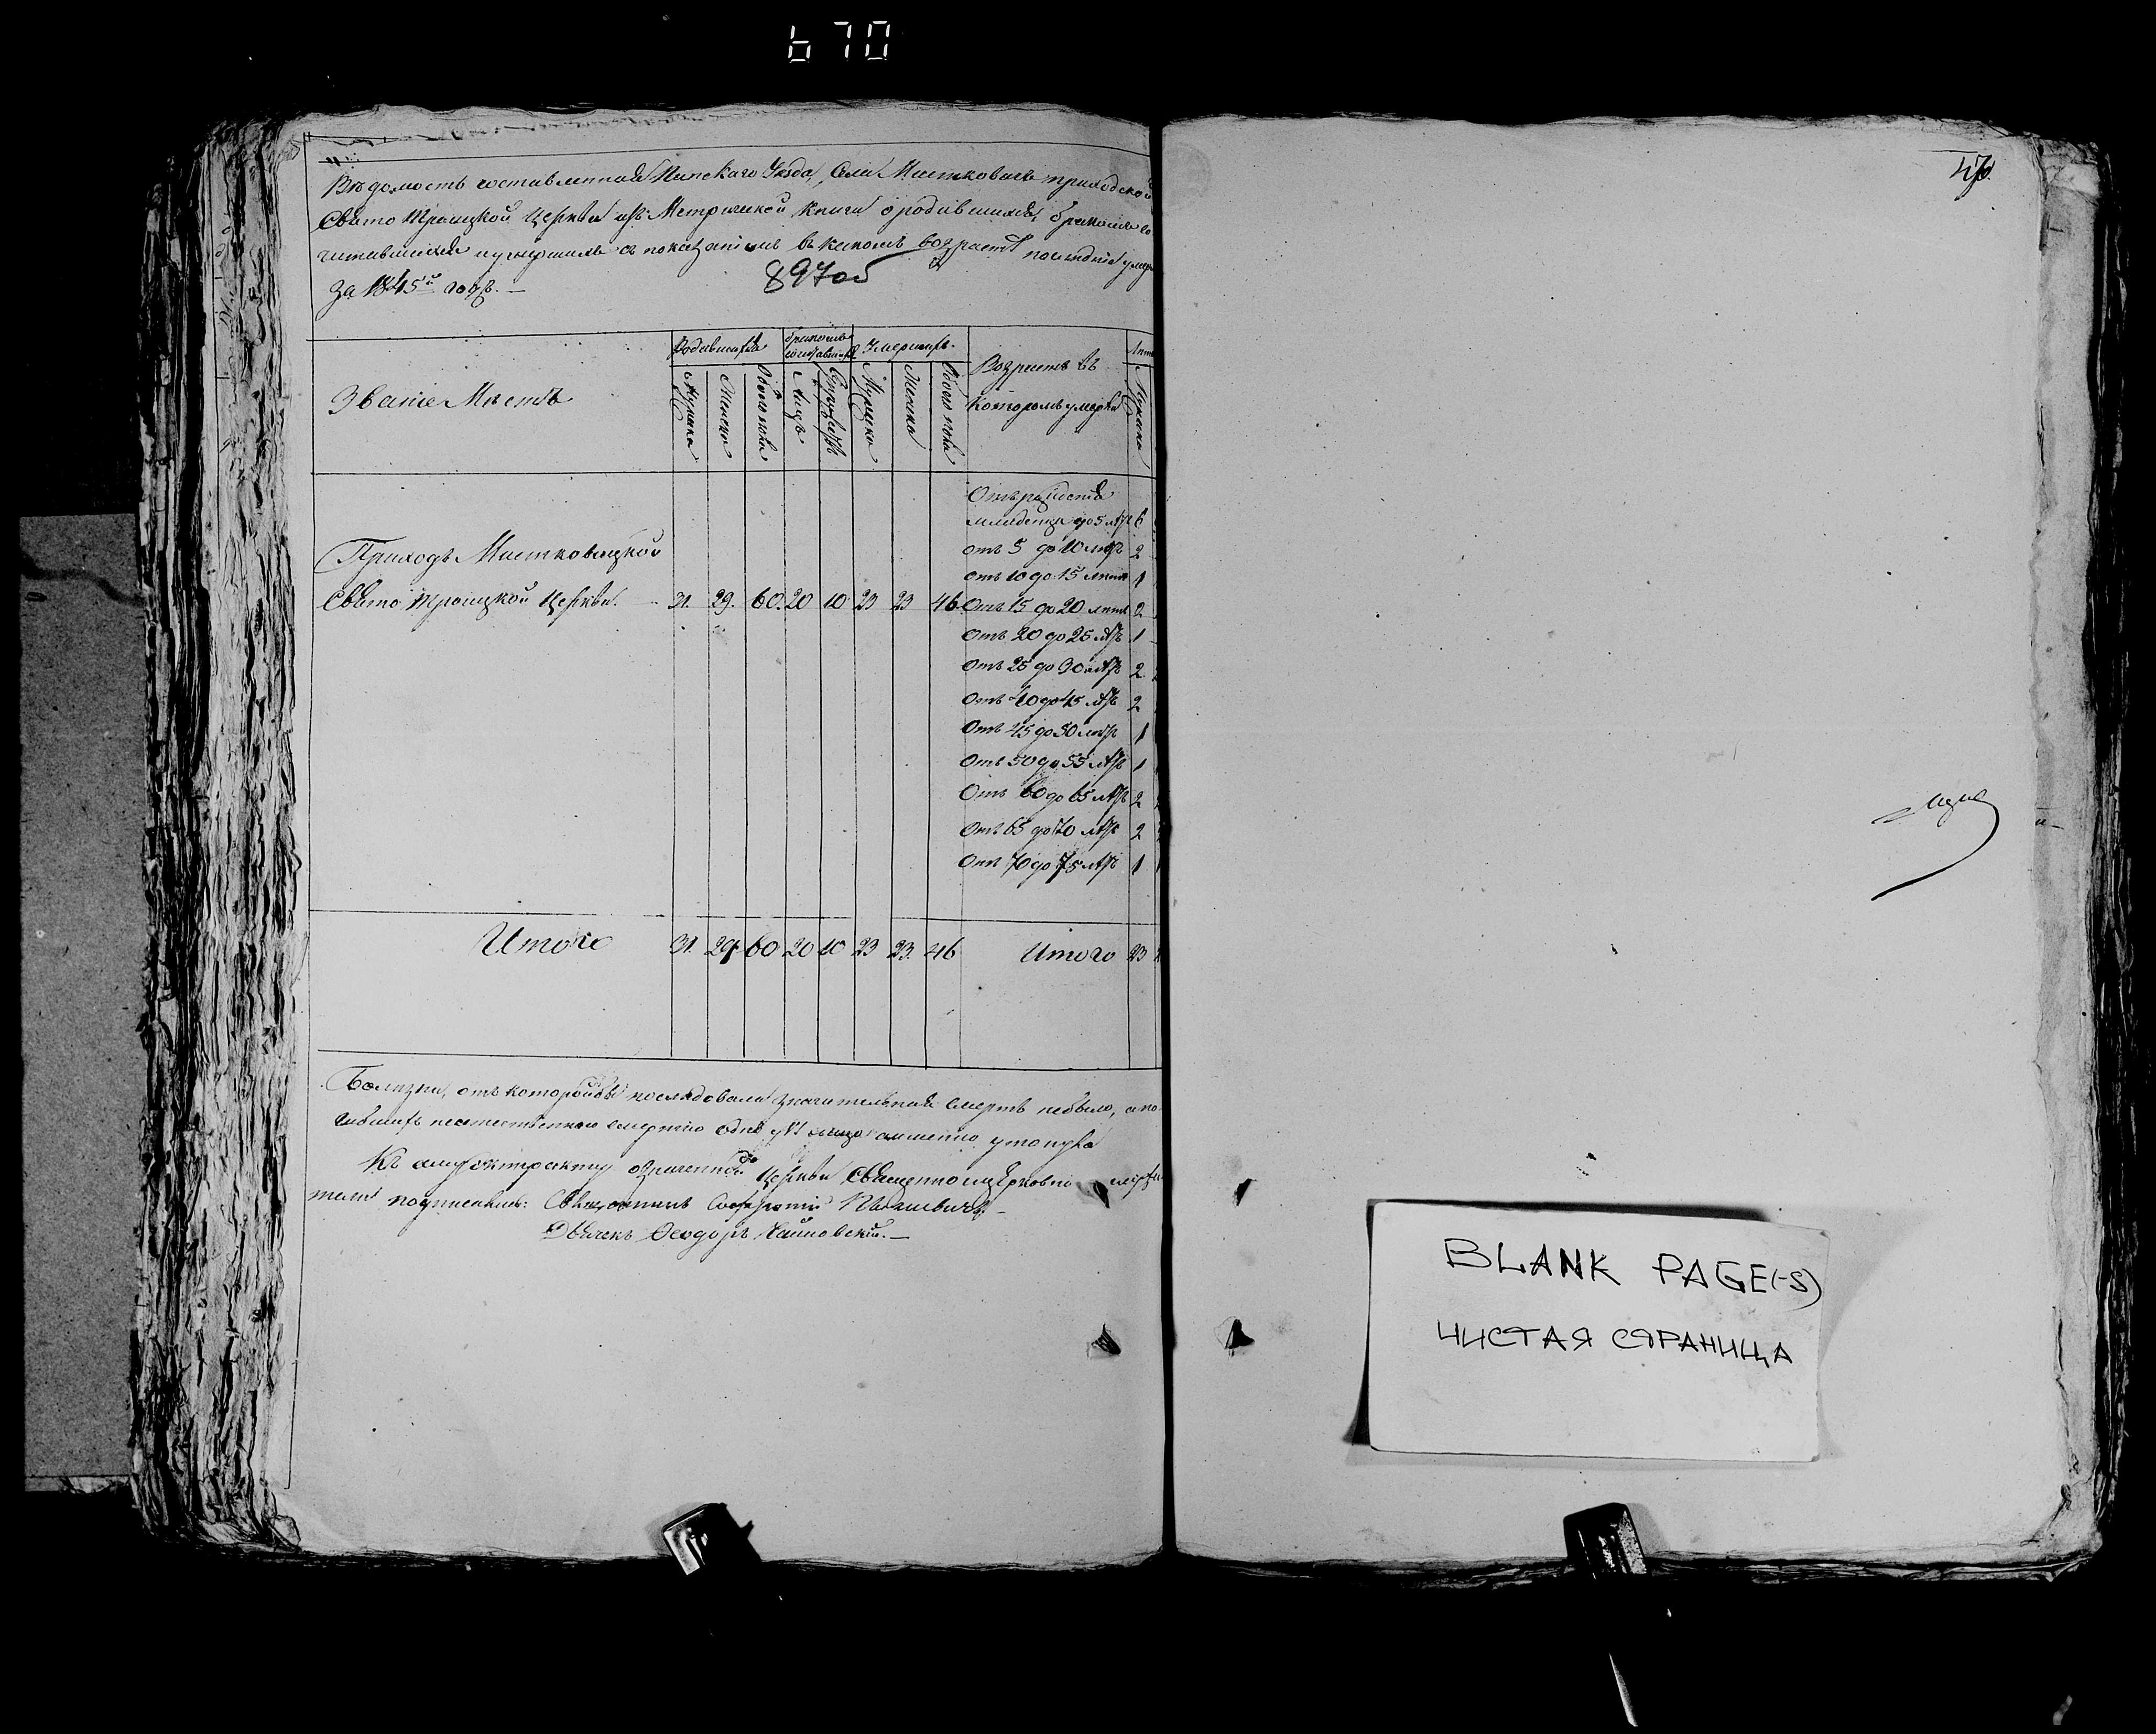 670
Вѣдомость составленная Пинскаго Уѣзда, Села Мистковичь приходской
Свято Троицкой Церкви изъ Метрической Книги о родившихся, бракомъ со
читавшихся и умершихъ съ показаніемъ въ какомъ возрастѣ послѣдніе умер
За 1845й годъ. —
897 об
Званіе Мѣстъ
Родившихся
бракомъ сочетавших
Умершихъ
Возрастъ въ
Которомъ умерли
Мужска
Женска
Обоего пола
Лицъ
Супружествъ
Мужско
Женска
Обоего пола
Мужска
Отъ рождества
младенца до 5 лѣтъ 6
отъ 5 до 10 лѣтъ 2
Приходъ Мистковицкой
отъ 10 до 15 лѣтъ 1
Свято Троицкой Церкви. 31. 29. 60. 20 10 23 23 46 Отъ 15 до 20 лѣтъ 2
Отъ 20 до 25 лѣтъ 1
Отъ 25 до 30 лѣтъ 2
Отъ 40 до 45 лѣтъ 2
Отъ 45 до 50 лѣтъ 1
Отъ 50 до 55 лѣтъ 1
Отъ 60 до 65 лѣтъ 2
Отъ 65 до 70 лѣтъ 2
Отъ 70 до 75 лѣтъ 1
Итого 31. 29. 60 20 10 23 23. 46 Итого 23
Болѣзни, отъ которой бы послѣдовала значительная смерть небыло, а по
гибшихъ неестественною смертію одно лицо именно утонула
Къ сему экстракту означенной Церкви Священно и церковно
тели подписались: Священникъ
Дьячекъ Ѳеодоръ
47
BLANK PAGE(-S)
ЧИСТАЯ СТРАНИЦА